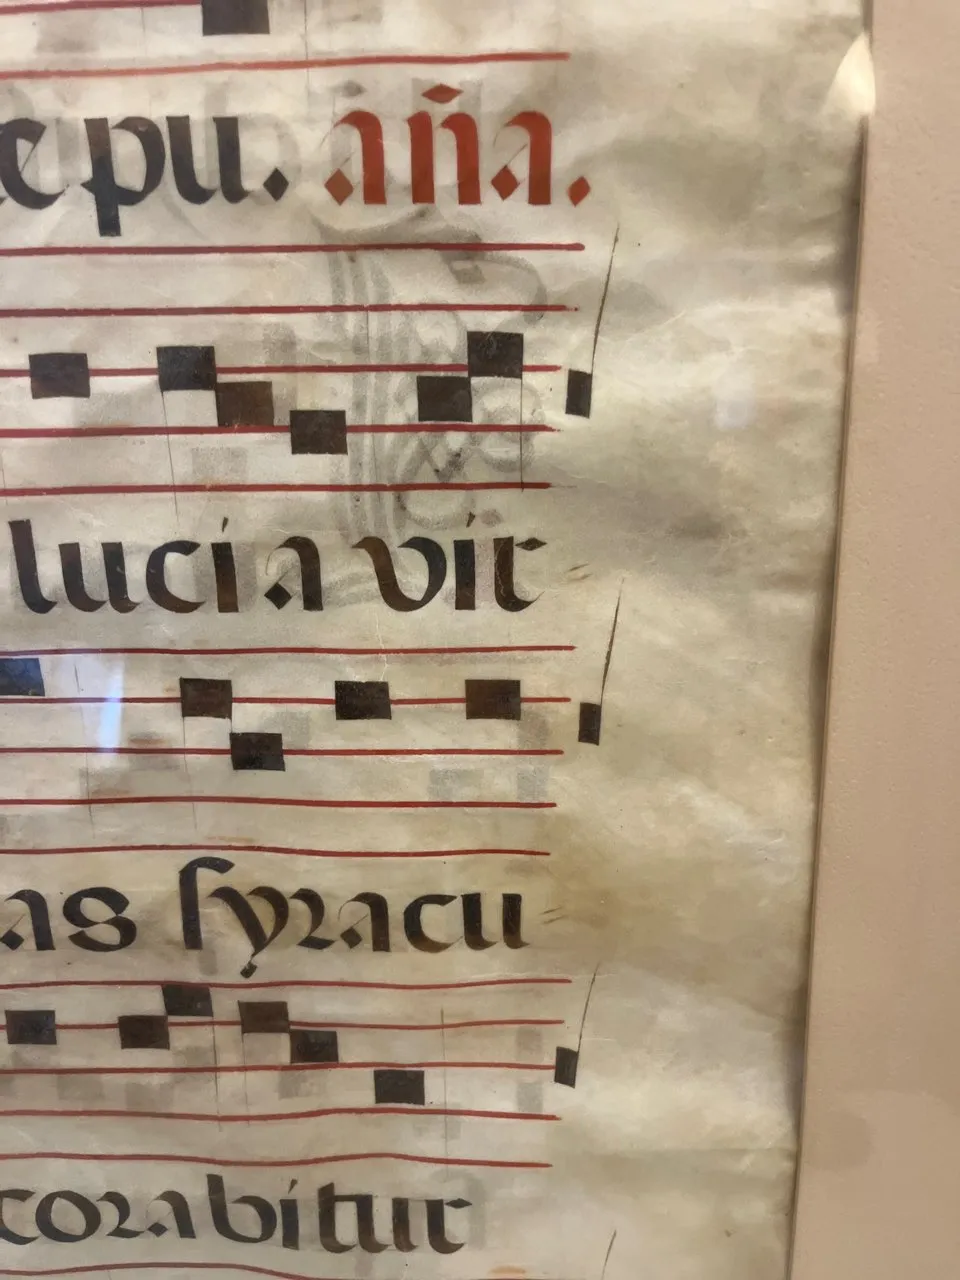 epu. añа.
lucía vir
as syracu
corabitur